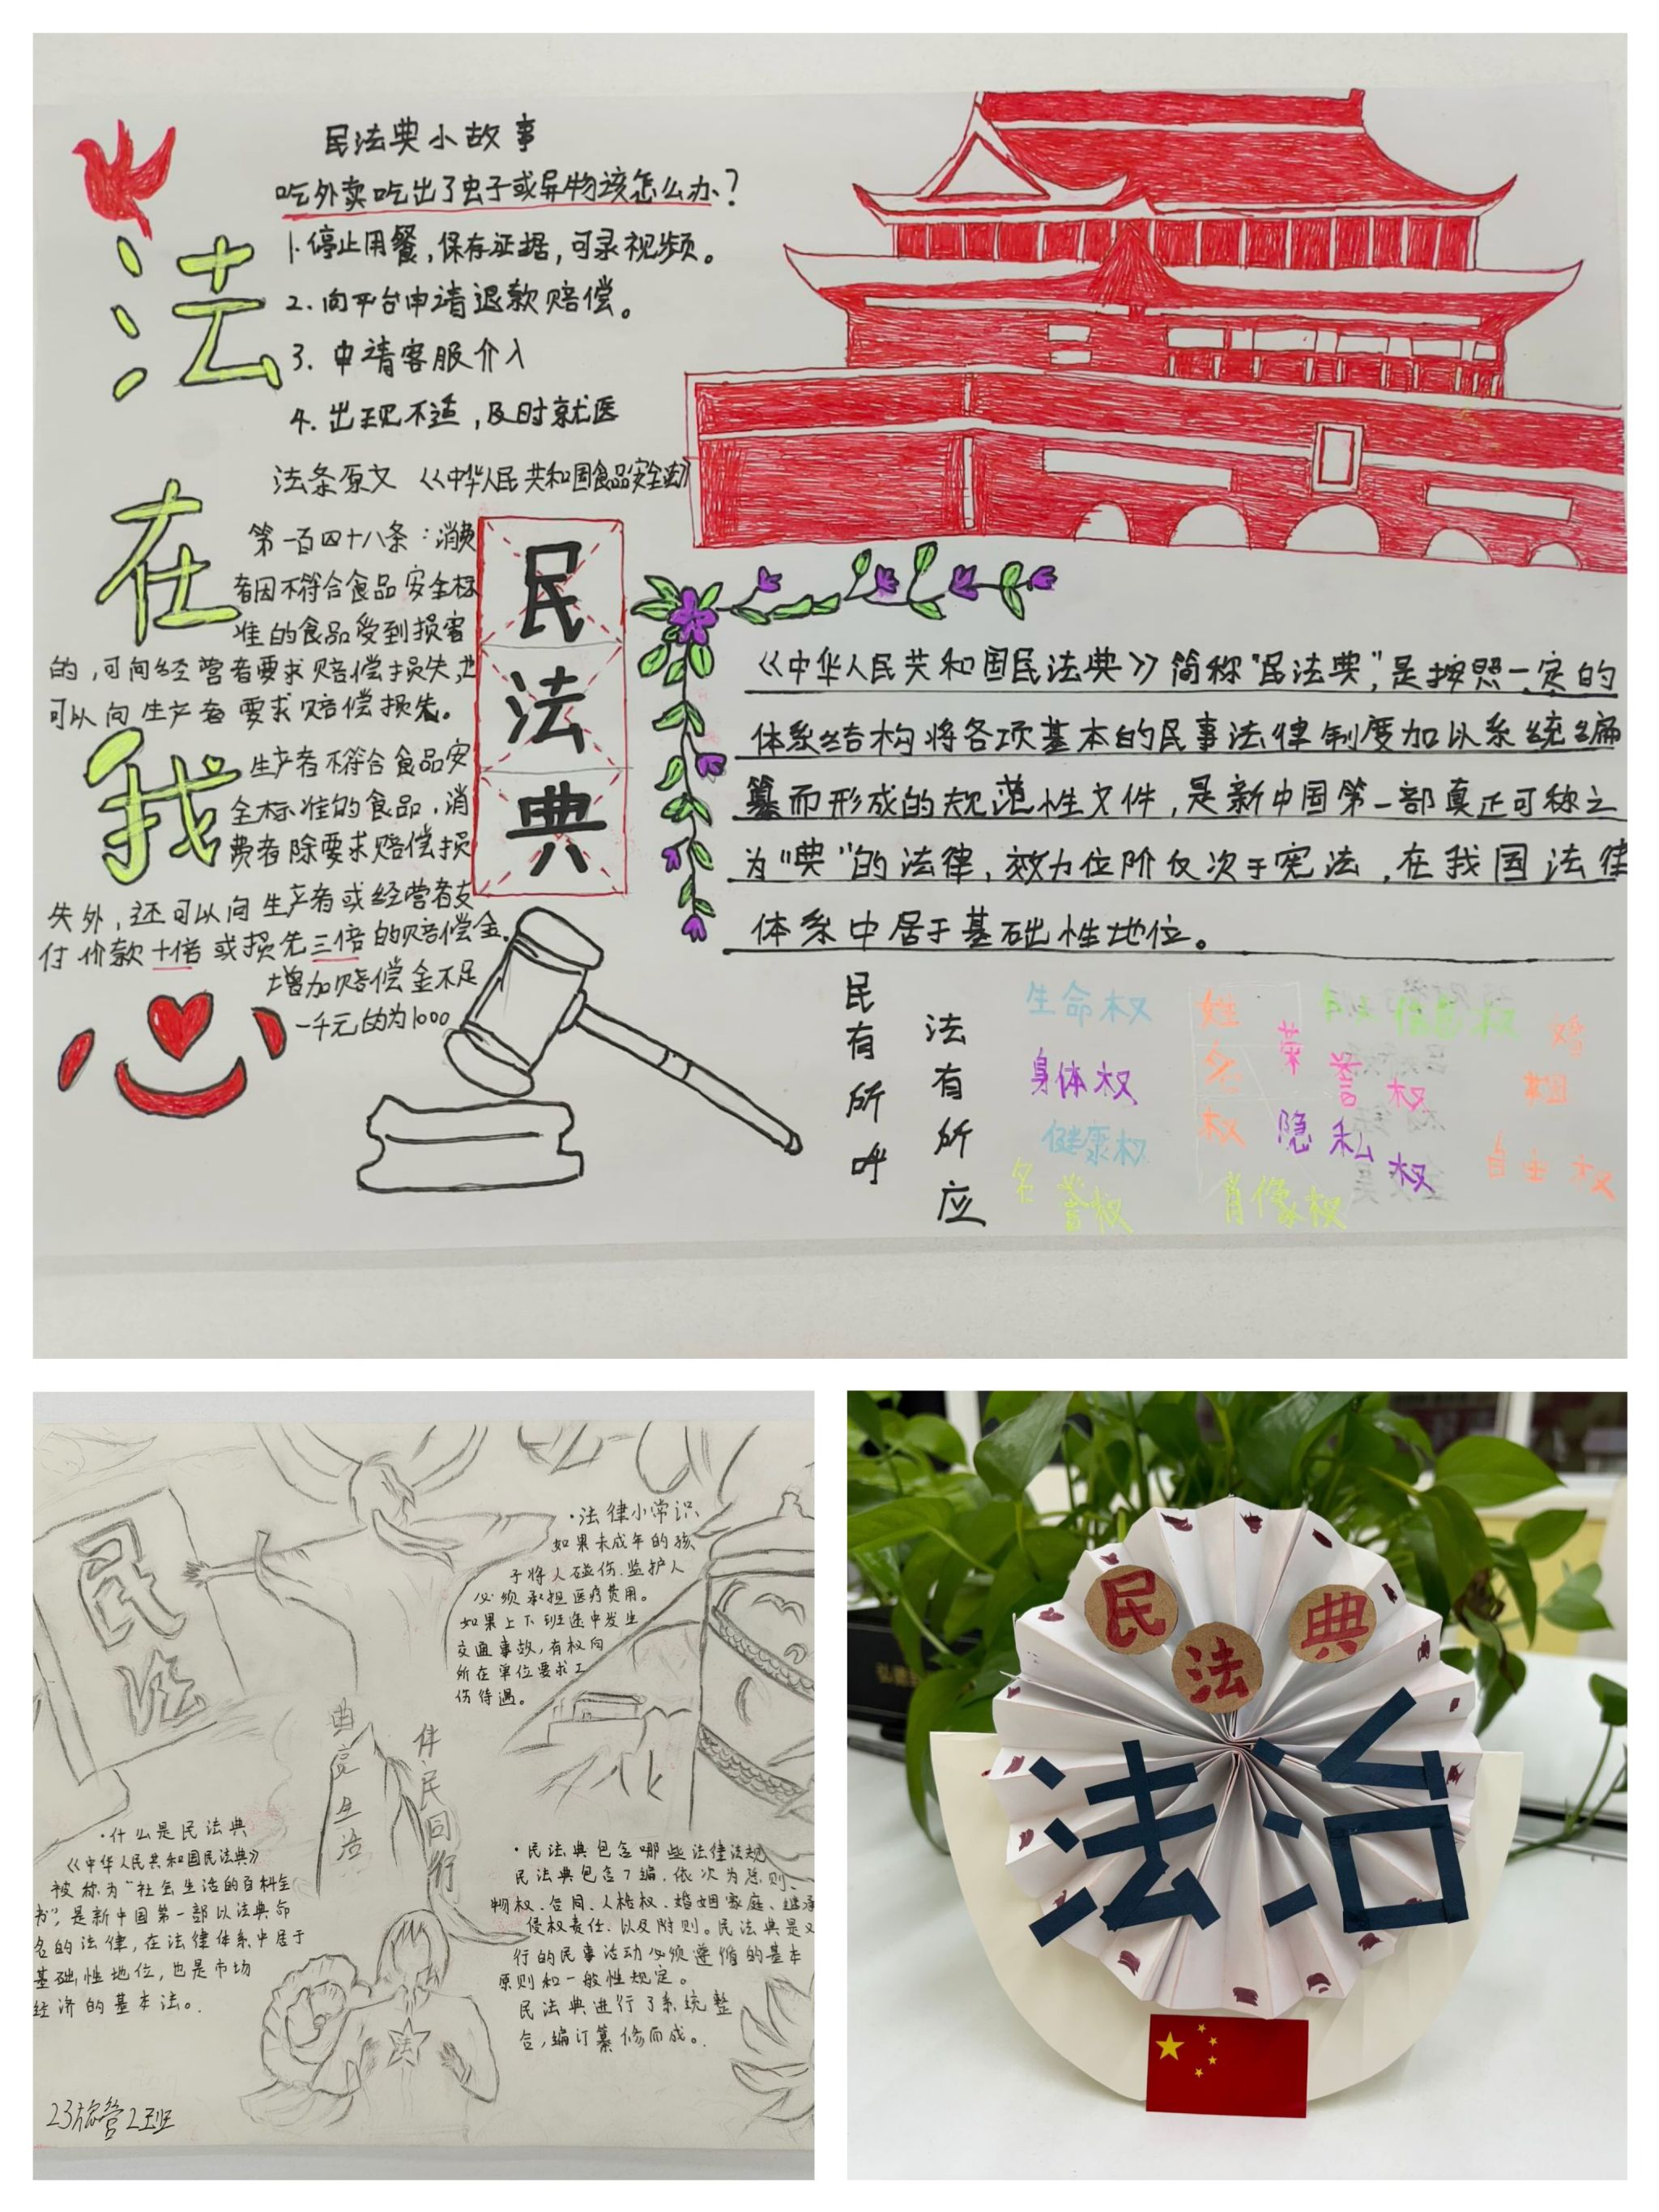 法
在
我
民法典小故事
吃外卖吃出了虫子或异物该怎么办？
1.停止用餐，保存证据，可录视频。
2.向平台申请退款赔偿。
3.申请客服介入
4.出现不适，及时就医
法条原文《中华人民共和国食品安全法》
第一百四十八条：消费
者因不符合食品安全标
准的食品受到损害
的，可向经营者要求赔偿损失，也
可以向生产者要求赔偿损失。
生产者不符合食品安
全标准的食品，消
费者除要求赔偿损
失外，还可以向生产者或经营者支
付价款十倍或损失三倍的赔偿金。
增加赔偿金不足
一千元的为1000
民
法
典
《中华人民共和国民法典》简称“民法典”，是按照一定的
体系结构将各项基本的民事法律制度加以系统编
纂而形成的规范性文件，是新中国第一部真正可称之
为“典”的法律，效力位阶仅次于宪法，在我国法律
体系中居于基础性地位。
民有所呼
法有所应
生命权
身体权
健康权
名誉权
姓名权
荣誉权
隐私权
肖像权
信息权
婚姻
自由权
民法
·法律小常识
如果未成年的孩
子将人碰伤，监护人
必须承担医疗费用。
如果上下班途中发生
交通事故，有权向
所在单位要求工
伤待遇。
典亮生活
伴民同行
·什么是民法典
《中华人民共和国民法典》
被称为“社会生活的百科全
书”，是新中国第一部以法典命
名的法律，在法律体系中居于
基础性地位，也是市场
经济的基本法。
·民法典包含哪些法律法规
民法典包含7编，依次为总则、
物权、合同、人格权、婚姻家庭、继承
侵权责任、以及附则。民法典是
行的民事活动必须遵循的基本
原则和一般性规定。
民法典进行了系统整
合，编订纂修而成。
法
23旅管2班
民法典
法治